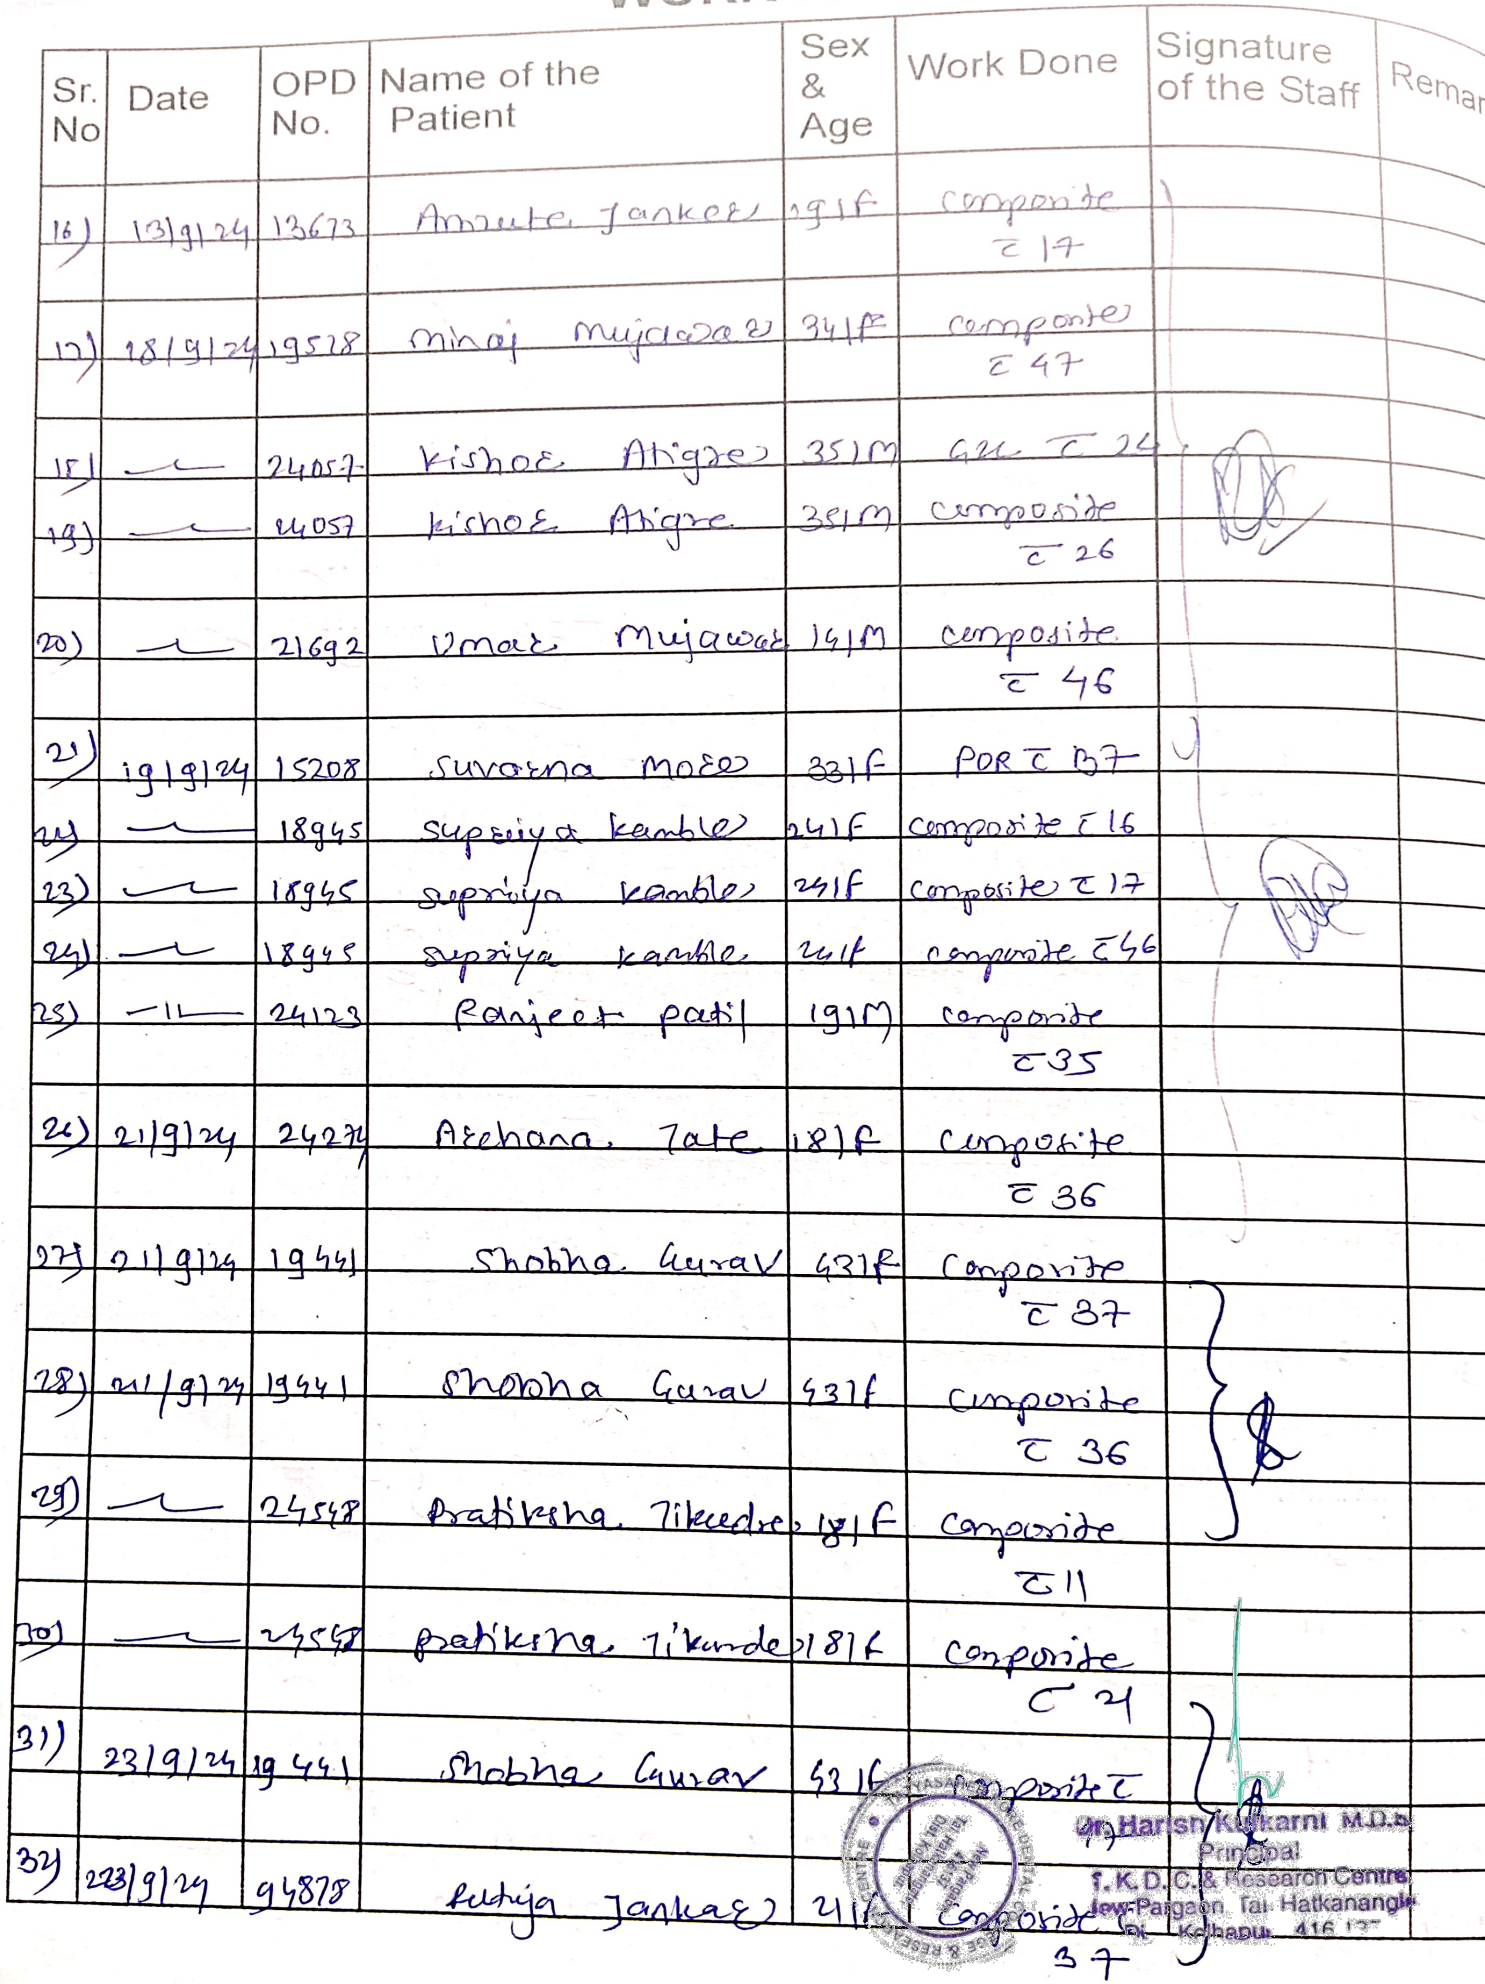 Sr. No Date OPD No. Name of the Patient Sex & Age Work Done Signature of the Staff Remar
16) 13/9/24 13673 19/F composite
c̅ 17
17) 18/9/24 19528 Minaj Mujawar 34/F composite
c̅ 47
18) –〃– 24057 Kishor Atigre 35/M c̅ 24
19) –〃– 24057 Kishor Atigre 35/M composite
c̅ 26
20) –〃– 21692 Umar Mujawar 14/M composite
c̅ 46
21) 19/9/24 15208 Suvarna More 33/F POR c̅ 37
22) –〃– 18945 Supriya Kamble 24/F composite c̅ 16
23) –〃– 18945 Supriya Kamble 24/F composite c̅ 17
24) –〃– 18945 Supriya Kamble 24/F composite c̅ 46
25) –〃– 24123 Ranjeet Patil 19/M composite
c̅ 35
26) 21/9/24 24274 Archana Tate 18/F composite
c̅ 36
27) 21/9/24 19441 Shobha Gurav 43/F composite
c̅ 37
28) 21/9/24 19441 Shobha Gurav 43/F composite
c̅ 36
29) –〃– 24548 Pratiksha 18/F composite
c̅ 11
30) –〃– 24548 Pratiksha 18/F composite
c̅ 21
31) 23/9/24 19441 Shobha Gurav 43/F composite c̅
Dr. Harish Kulkarni M.D.S
Principal
32) 23/9/24 94878 Rutuja Jankar 21/F composite
T. K. D. C. & Research Centre
New Pargaon, Tal. Hatkanangle
Kolhapur
37